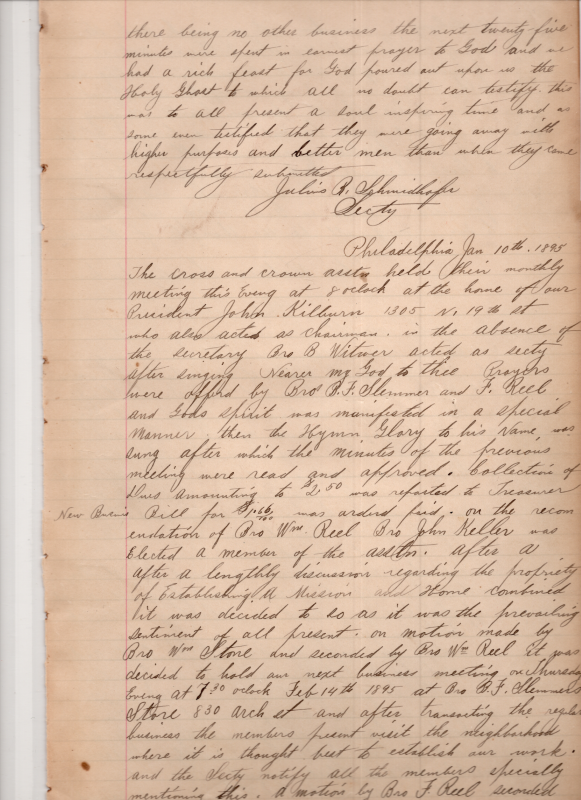 there being no other business the next twenty five
minutes were spent in earnest prayer to God and we
had a rich feast for God poured out upon us the
Holy Ghost to which all no doubt can testify. this
was to all present a soul inspiring time and as
some even testified that they were going away with
higher purposes and better men than when they came
respectfully submitted
Julius R. Schmidhofer
Secty
Philadelphia Jan 10th. 1895
The cross and crown asstn held their monthly
meeting this Eveng at 8 oclock at the home of our
President John Kilburn 1305 N. 19th st
who also acted as chairman. in the absence of
the secretary Bro B Witwer acted as secty
after singing Nearer my God to thee Prayers
were offerd by Bros B. F. Slemmer and F. Reel
and Gods spirit was manifested in a special
manner. then the Hymn Glory to his Name, was
sung after which the minutes of the previous
meeting were read and approved. Collection of
Dues amounting to $2.50 was reported to Treasurer
New Buisnes Bill for was orderd paid. on the recom
endation of Bro Wm Reel Bro John Keller was
Elected a member of the asstn. after a
after a lengthly discussion regarding the propriety
of Establishing a Mission and Home combined
it was decided to do as it was the prevailing
sentiment of all present. on motion made by
Bro Wm Stone and seconded by Bro Wm Reel it was
decided to hold our next business meeting on Thursday
Eveng at 7 30 oclock Feb 14th 1895 at Bro B. F. Slemmers
Store 830 Arch st and after transacting the regular
business the members present visit the neighborhood
where it is thought best to establish our work.
and the Secty notify all the members specially
mentioning this. a motion by Bro F Reel seconded